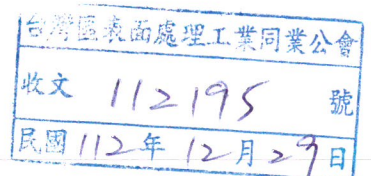 台灣區表面處理工業同業公會
收文 112195 號
民國 112年 12月 29日